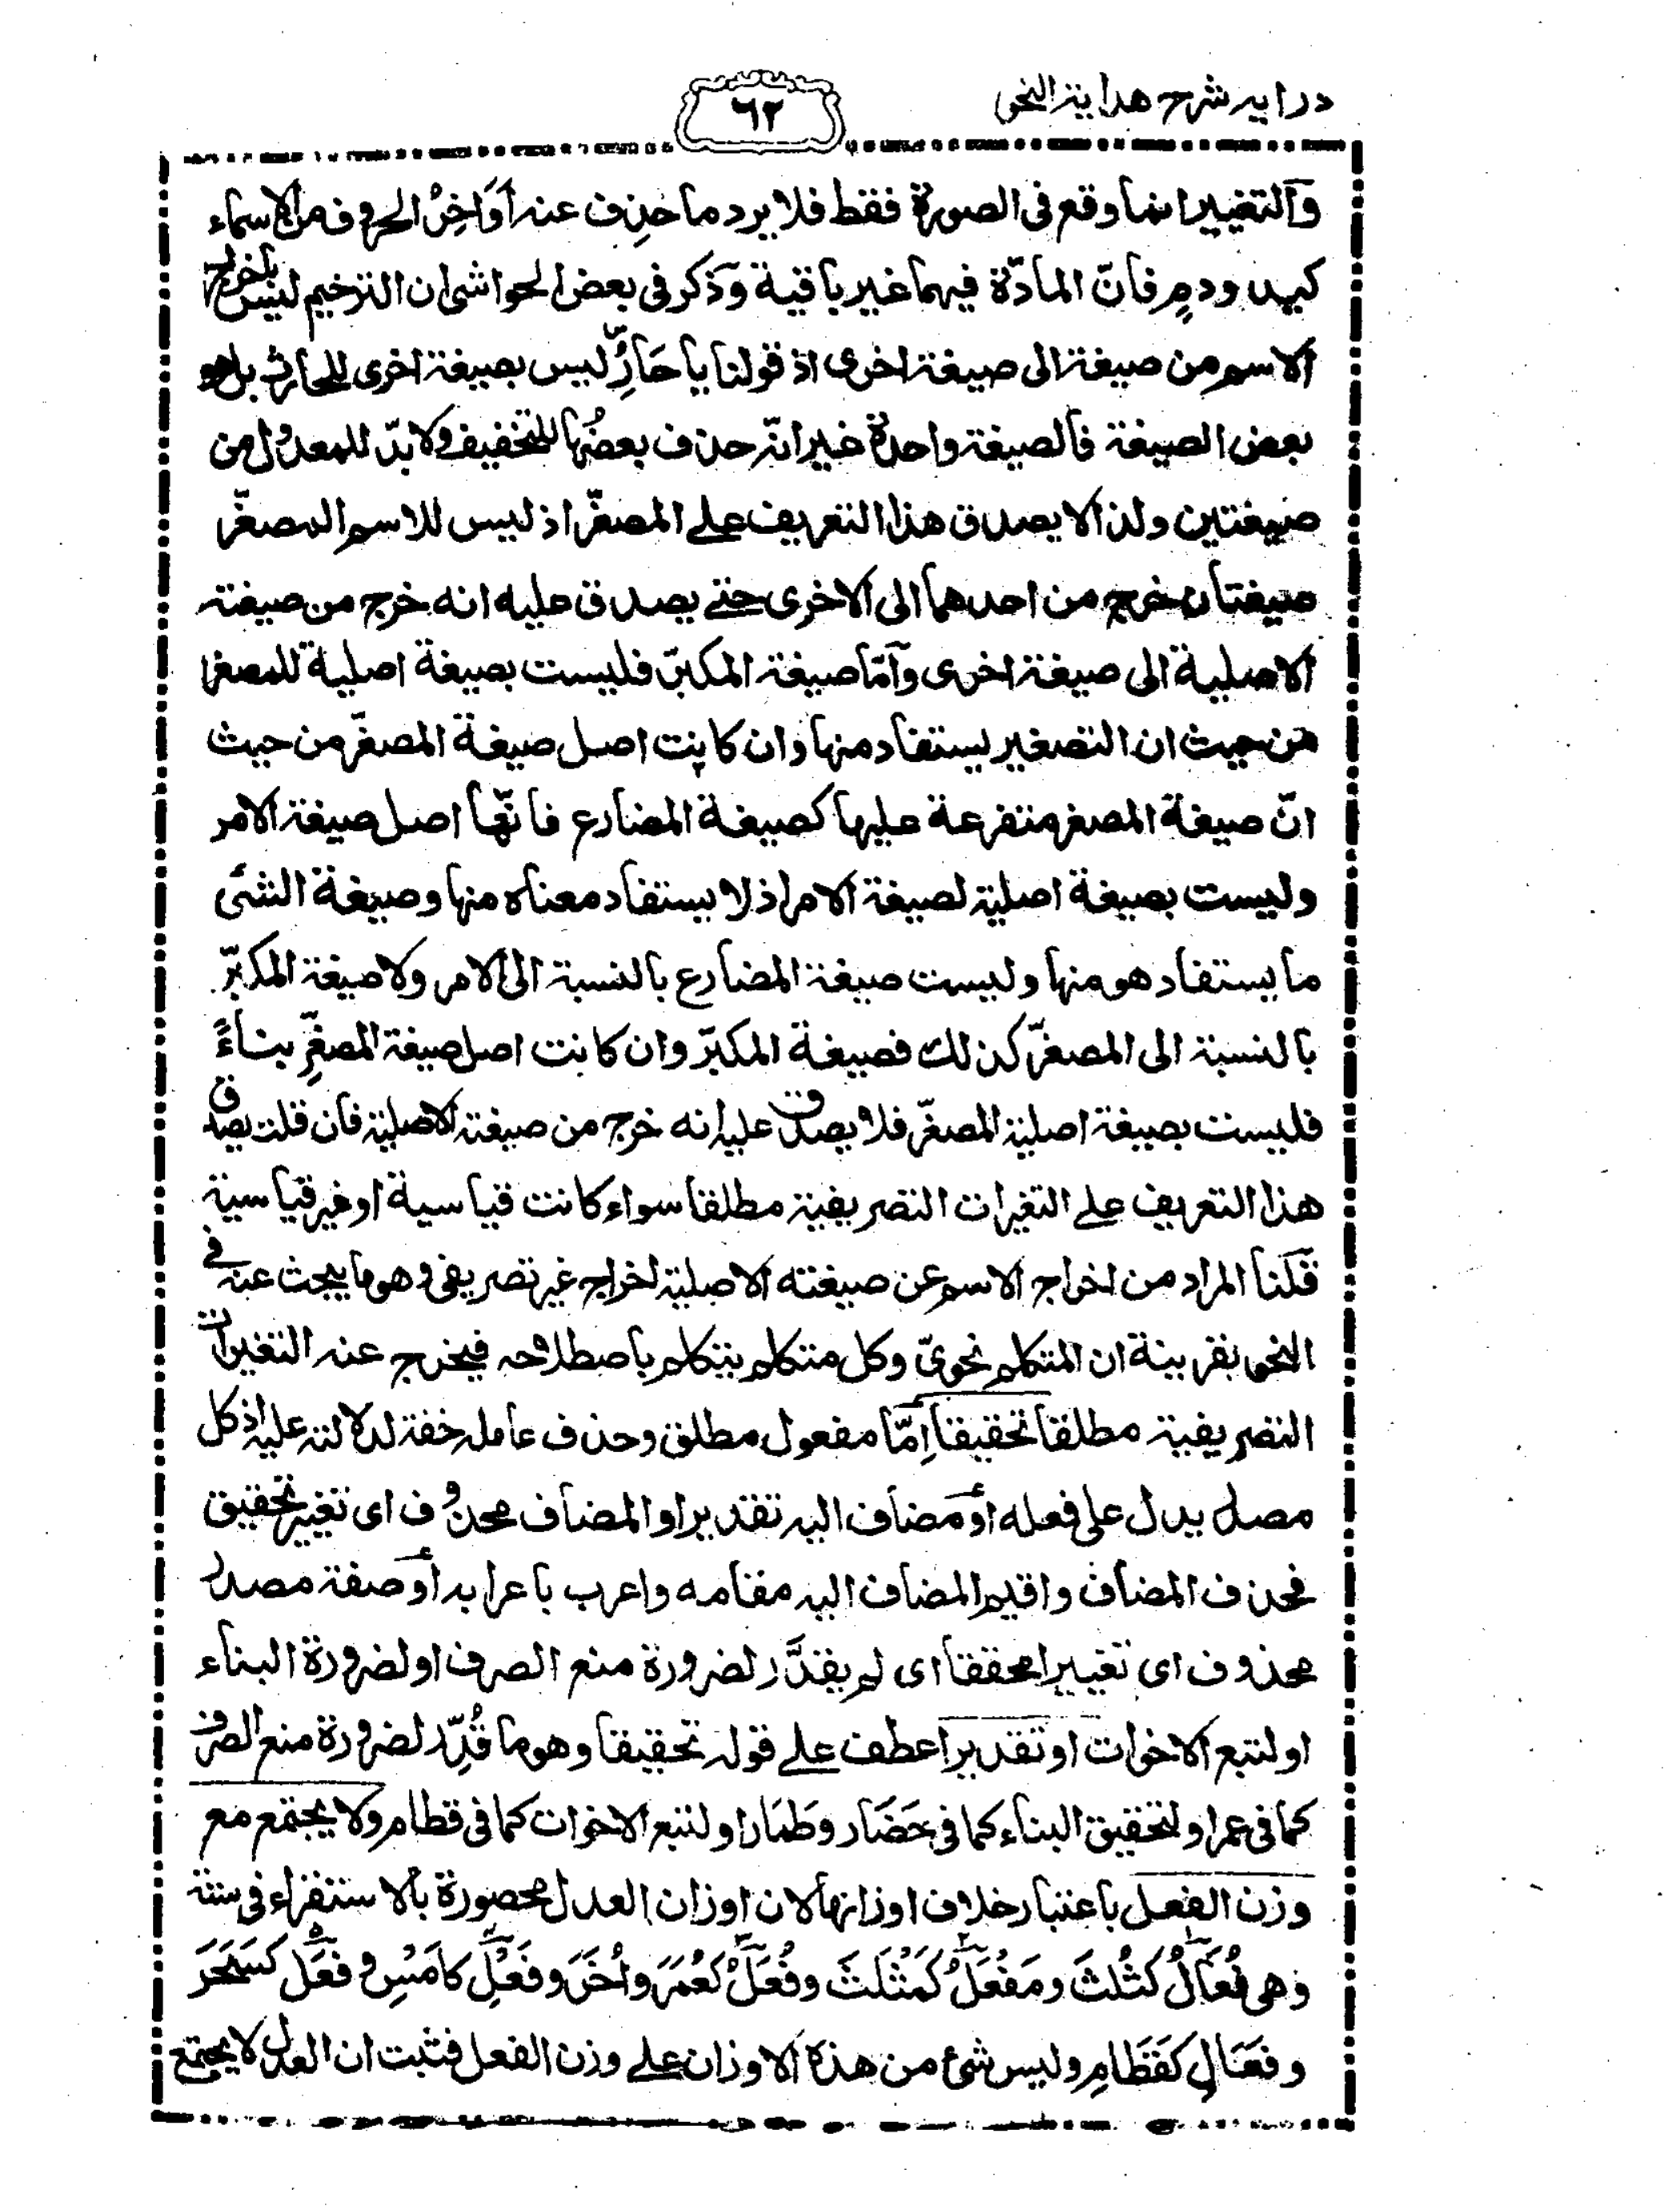 درايه شرح هداية النحو
٦٢
والتغيير انما وقع فى الصورة فقط فلا يرد ما حذف عنه أَوَاخِرُ الحروف من الاسماء
كيد ودمٍ فانّ المادّة فيهما غير باقية وذكر فى بعض الحواشى ان الترخيم ليس باخراج
الاسم من صيغة الى صيغة اخرى اذ قولنا يا حَارُ ليس بصيغة اخرى للحارث بل هو
بعض الصيغة فالصيغة واحدة غير انّه حذف بعضُها للتخفيف ولا بدّ للمعدول من
صيغتين ولذا لا يصدق هذا التعريف على المصغّر اذ ليس للاسم المصغّر
صيغتان خرج من احدهما الى الاخرى حتى يصدق عليه انه خرج من صيغته
الاصلية الى صيغة اخرى وامّا صيغة المكبّر فليست بصيغة اصلية للمصغر
من حيث ان التصغير يستفاد منها وان كانت اصل صيغة المصغّر من حيث
انّ صيغة المصغر متفرعة عليها كصيغة المضارع فانّها اصل صيغة الامر
وليست بصيغة اصلية لصيغة الامر اذ لا يستفاد معناه منها وصيغة الشئ
ما يستفاد هو منها وليست صيغة المضارع بالنسبة الى الامر ولا صيغة المكبّر
بالنسبة الى المصغّر كذلك فصيغة المكبّر وان كانت اصل صيغة المصغّرِ بناءً
فليست بصيغة اصلية المصغّر فلا يصدق عليه انه خرج من صيغته الاصلية فان قلت يصدق
هذا التعريف على التغيرات التصريفية مطلقا سواء كانت قياسية او غير قياسية
قلنا المراد من اخراج الاسم عن صيغته الاصلية اخراج غير تصريفى وهو ما يبحث عنه فى
النحو بقرينة ان المتكلم نحوىّ وكل متكلم يتكلم باصطلاحه فيخرج عنه التغيرات
التصريفية مطلقا تحقيقا اِمّا مفعول مطلق وحذف عامله خفة لدلالته عليه اذ كل
مصدر يدل على فعله أو مضاف اليه تقديرا والمضاف محذوف اى تغيير تحقيق
فحذف المضاف واقيم المضاف اليه مقامه واعرب باعرابه أو صفة مصدر
محذوف اى تغييرا محققا اى لم يقدَّر لضرورة منع الصرف او لضرورة البناء
او لتبع الاخوات او تقديرا عطف على قوله تحقيقا وهو ما قُدِّر لضرورة منع الصرف
كما فى عمر او لتحقيق البناء كما فى حَضَار وطَمَار او لتبع الاخوات كما فى قطام ولا يجتمع مع
وزن الفعل باعتبار خلاف اوزانها لان اوزان العدل محصورة بالاستقراء فى ستة
وهى فُعَالُ كثُلثَ ومَفْعَلُ كَمَثْلَثَ وفُعَلُ كَعُمَرَ واُخَرَ وفَعْلِ كامَسِ وفعَل كسَحَرَ
وفعَالِ كقَطَامِ وليس شئ من هذه الاوزان على وزن الفعل فثبت ان العدل لا يجتمع